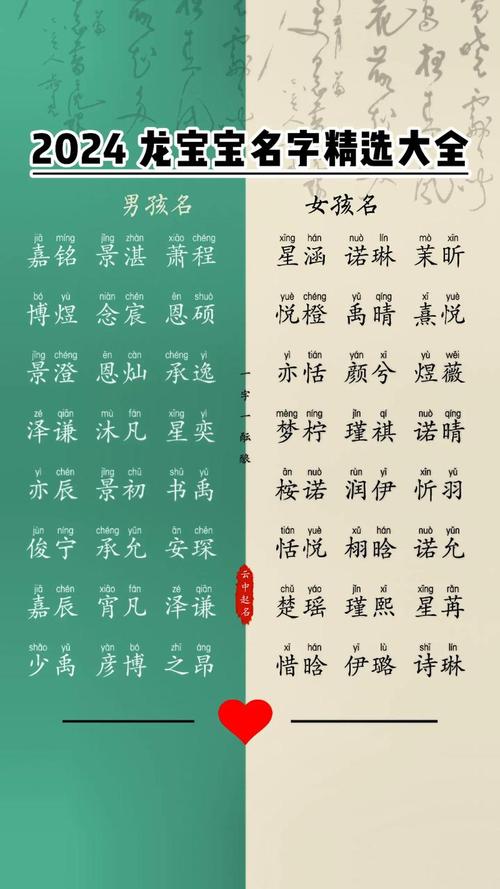 2024 龙宝宝名字精选大全
男孩名
jiā míng jǐng zhàn xiāo chéng
嘉铭 景湛 萧程
bó yù niàn chén ēn shuò
博煜 念宸 恩硕
jǐng chéng ēn càn chéng yì
景澄 恩灿 承逸
zé qiān mù fán xīng yì
泽谦 沐凡 星奕
yì chén jǐng chū shū yǔ
亦辰 景初 书禹
jùn níng chéng yǔn ān chēn
俊宁 承允 安琛
jiā chén xiāo fán zé qiān
嘉辰 宵凡 泽谦
shào yǔ yàn bó zhī áng
少禹 彦博 之昂
一字一酝酿
云中起名
女孩名
xīng hán nuò lín mò xīn
星涵 诺琳 茉昕
yuè chéng yǔ qíng xī yuè
悦橙 禹晴 熹悦
yì tián yán xī yù wēi
亦恬 颜兮 煜薇
mèng níng jǐn qí nuò qíng
梦柠 瑾祺 诺晴
ān nuò rùn yī xīn yǔ
桉诺 润伊 忻羽
tián yuè yǔ hán nuò yǔn
恬悦 栩晗 诺允
chǔ yáo jǐn xī xīng rǎn
楚瑶 瑾熙 星苒
xī hán yī lù shī lín
惜晗 伊璐 诗琳